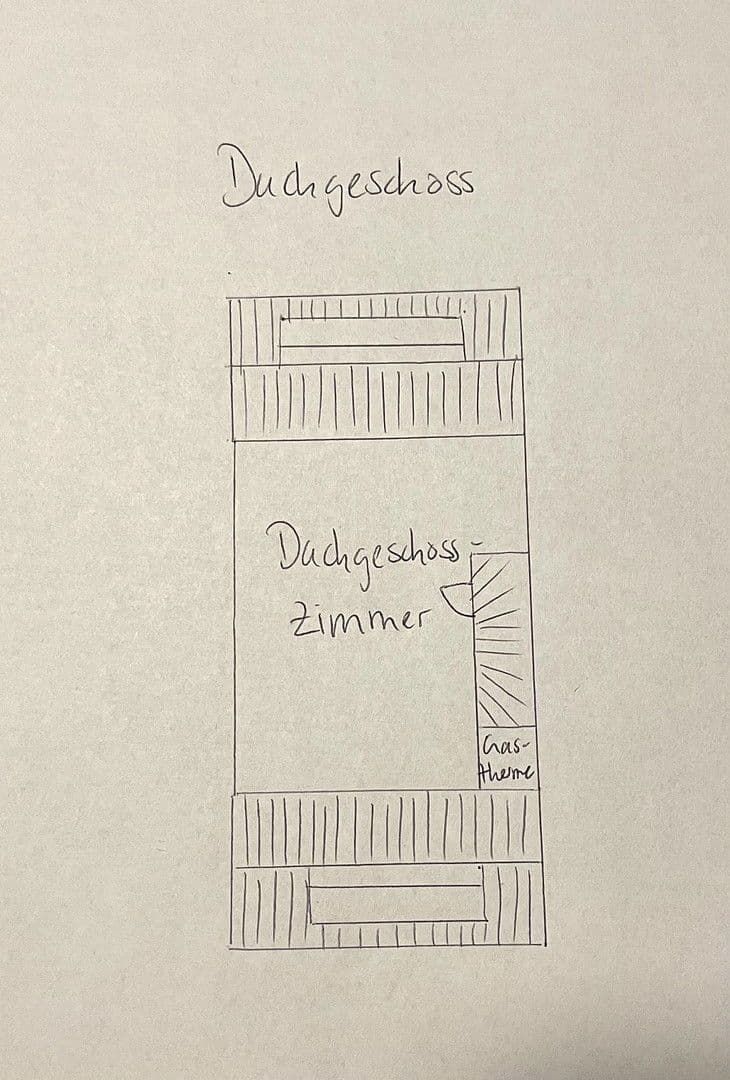 Dachgeschoss
Dachgeschoss-
Zimmer
Gas-
therme